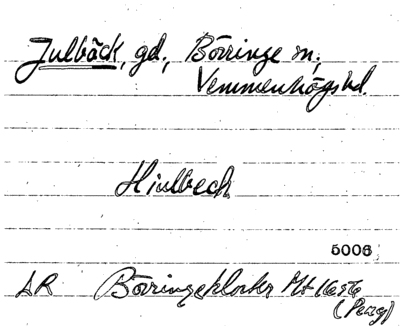 Julbäck, gd., Börringe sn,
Vemmenhögs hd.
Hiulbech
5006
LR Börringekloster Mt 1656
(Peng)